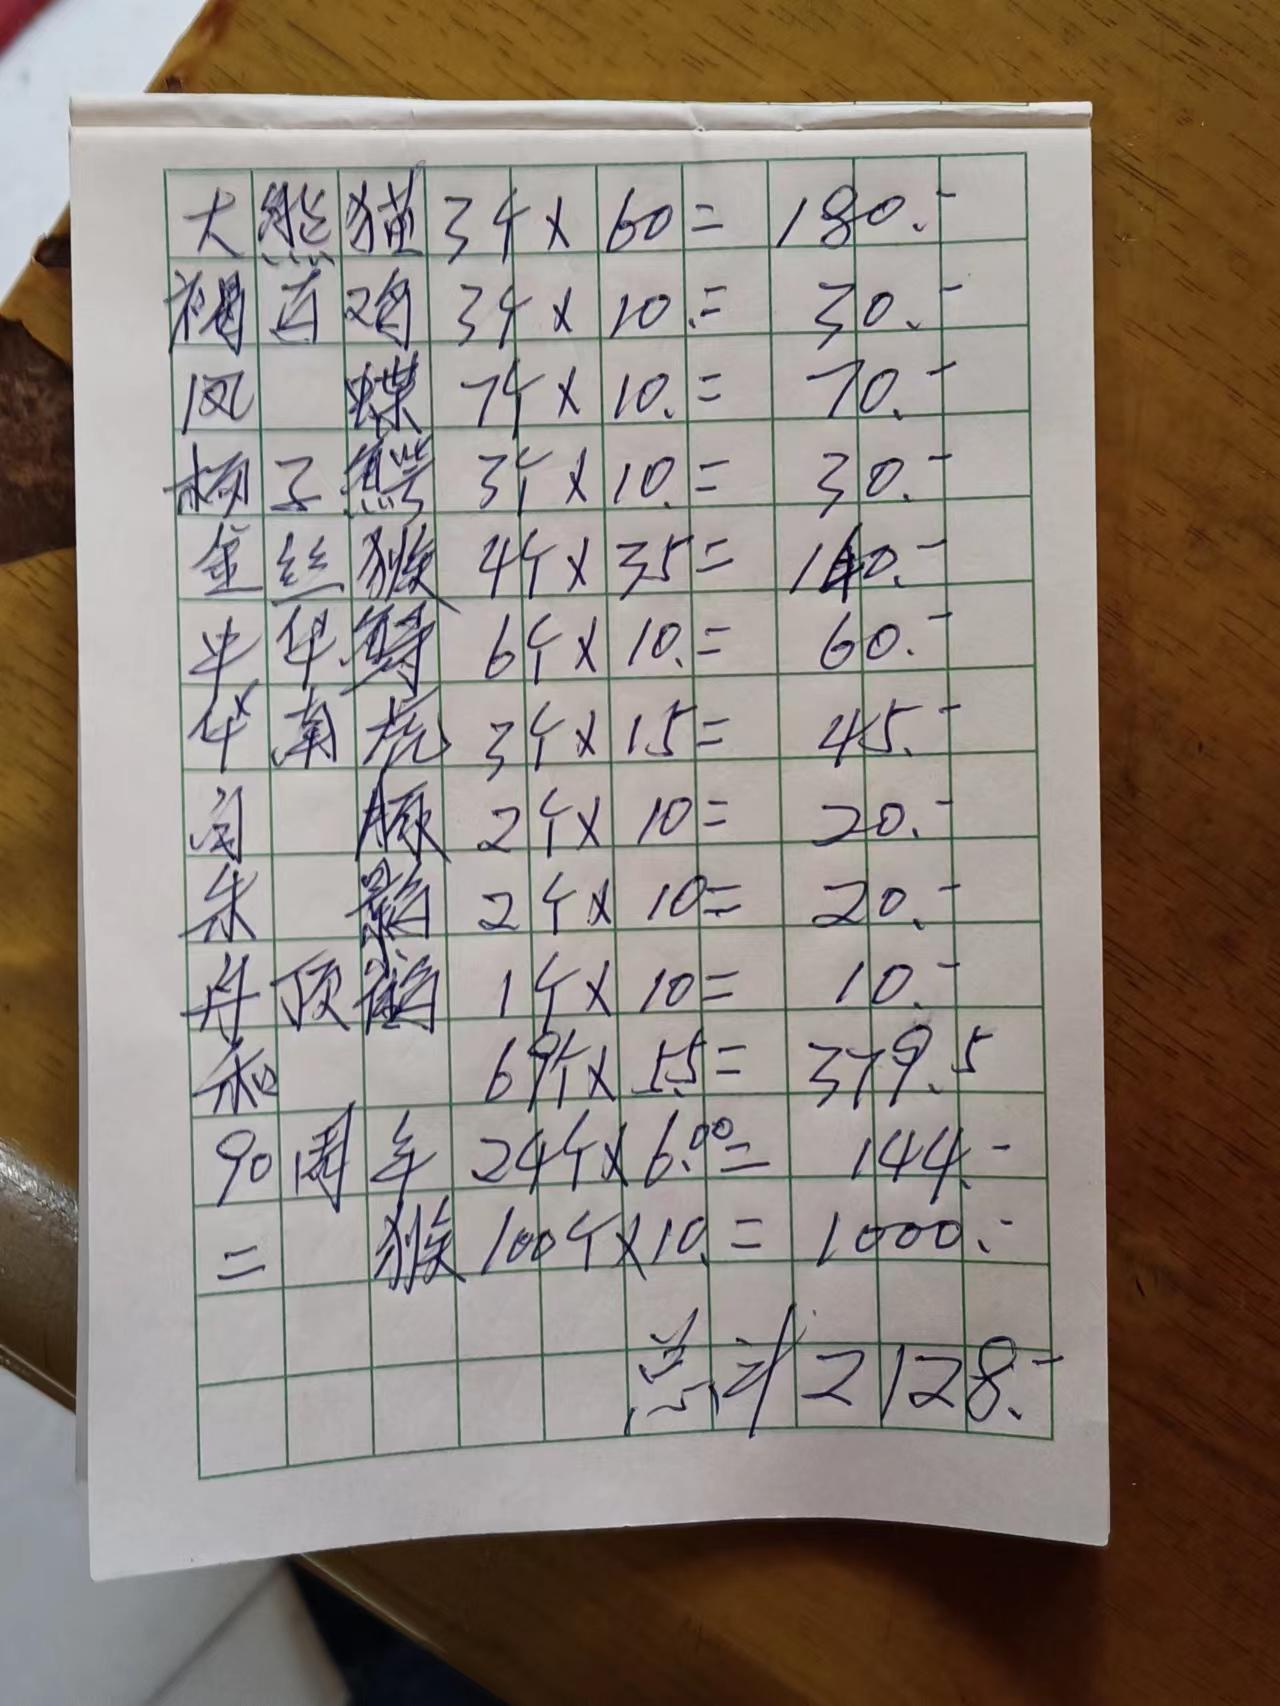 大熊猫3个×60=180.-
褐马鸡3个×10.=30.-
凤蝶7个×10.=70.-
杨子鳄3个×10.=30.-
金丝猴4个×35=140.-
中华鲟6个×10.=60.-
华南虎3个×15=45.-
白豚2个×10=20.-
朱鹮2个×10=20.-
丹顶鹤1个×10=10.-
和69个×5.5=379.5
90周年24个×6.00=144.-
二猴100个×10.=1000.-
总计2128.-